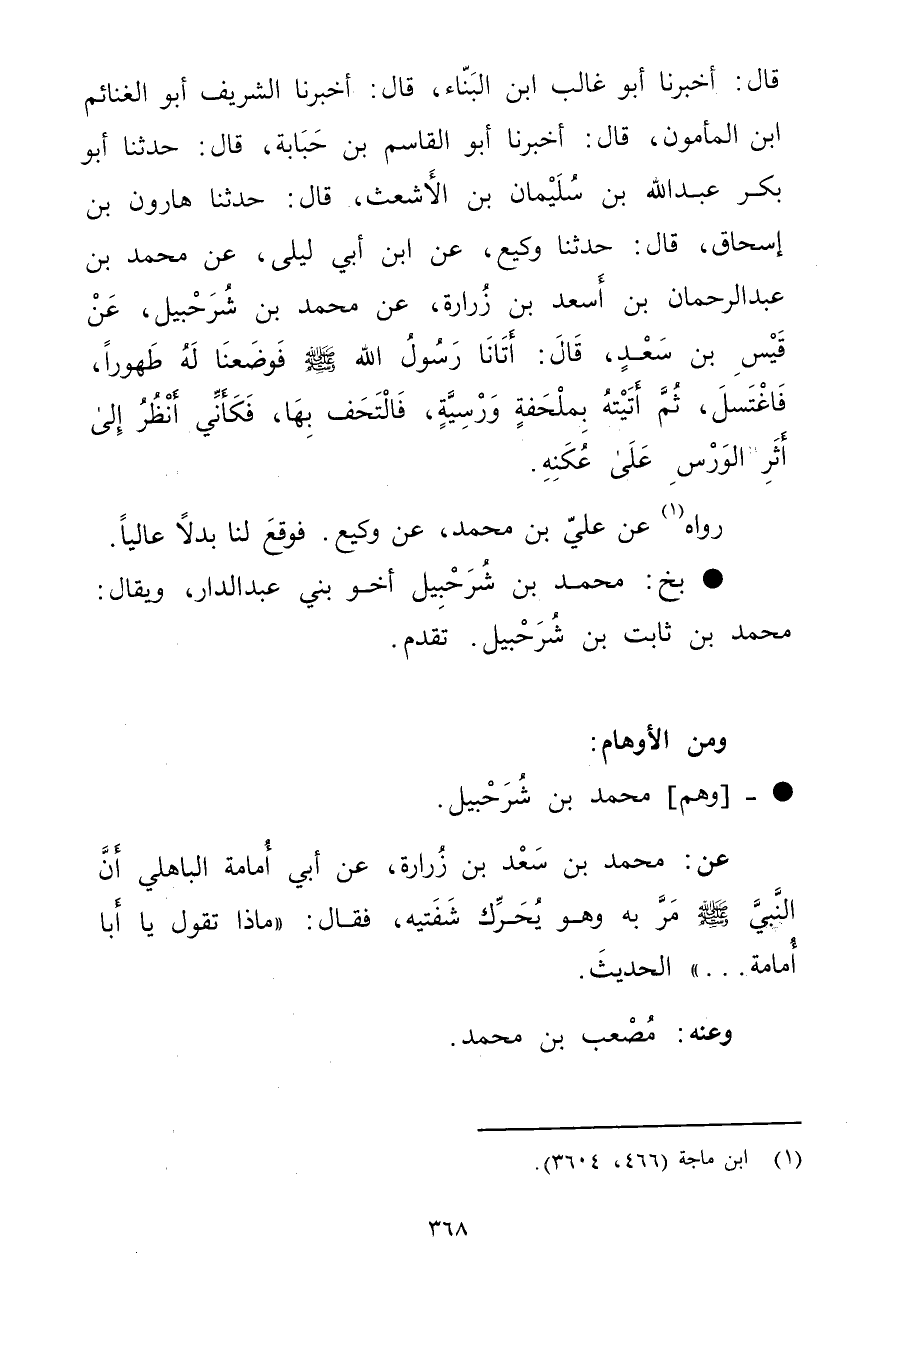 قال: أخبرنا أبو غالب ابن البَنّاء، قال: أخبرنا الشريف أبو الغنائم
ابن المأمون، قال: أخبرنا أبو القاسم بن حَبَابة، قال: حدثنا أبو
بكر عبدالله بن سُلَيْمان بن الأَشعث، قال: حدثنا هارون بن
إسحاق، قال: حدثنا وكيع، عن ابن أبي ليلى، عن محمد بن
عبدالرحمان بن أَسعد بن زُرارة، عن محمد بن شُرَحْبيل، عَنْ
قَيْسِ بن سَعْدٍ، قَالَ: أَتَانَا رَسُولُ الله ﷺ فَوضَعنَا لَهُ طَهوراً،
فَاغْتَسلَ، ثُمَّ أَتَيْتهُ بِملْحَفةٍ وَرْسِيَّةٍ، فَالْتَحَف بِهَا، فَكَأَنِّي أَنْظُرُ إِلىٰ
أَثَرِ الوَرْسِ عَلَىٰ عُكَنِهِ.
رواه(١) عن عليّ بن محمد، عن وكيع. فوقعَ لنا بدلاً عالياً.
● بخ: محمد بن شُرَحْبِيل أخو بني عبدالدار، ويقال:
محمد بن ثابت بن شُرَحْبيل. تقدم.
ومن الأوهام:
● - [وهم] محمد بن شُرَحْبيل.
عن: محمد بن سَعْد بن زُرارة، عن أبي أُمامة الباهلي أَنَّ
النَّبيَّ ﷺ مَرَّ به وهو يُحَرِّك شَفَتيه، فقال: «ماذا تقول يا أَبا
أُمامة...» الحديثَ.
وعنه: مُصْعب بن محمد.
(١) ابن ماجة (٤٦٦، ٣٦٠٤).
٣٦٨